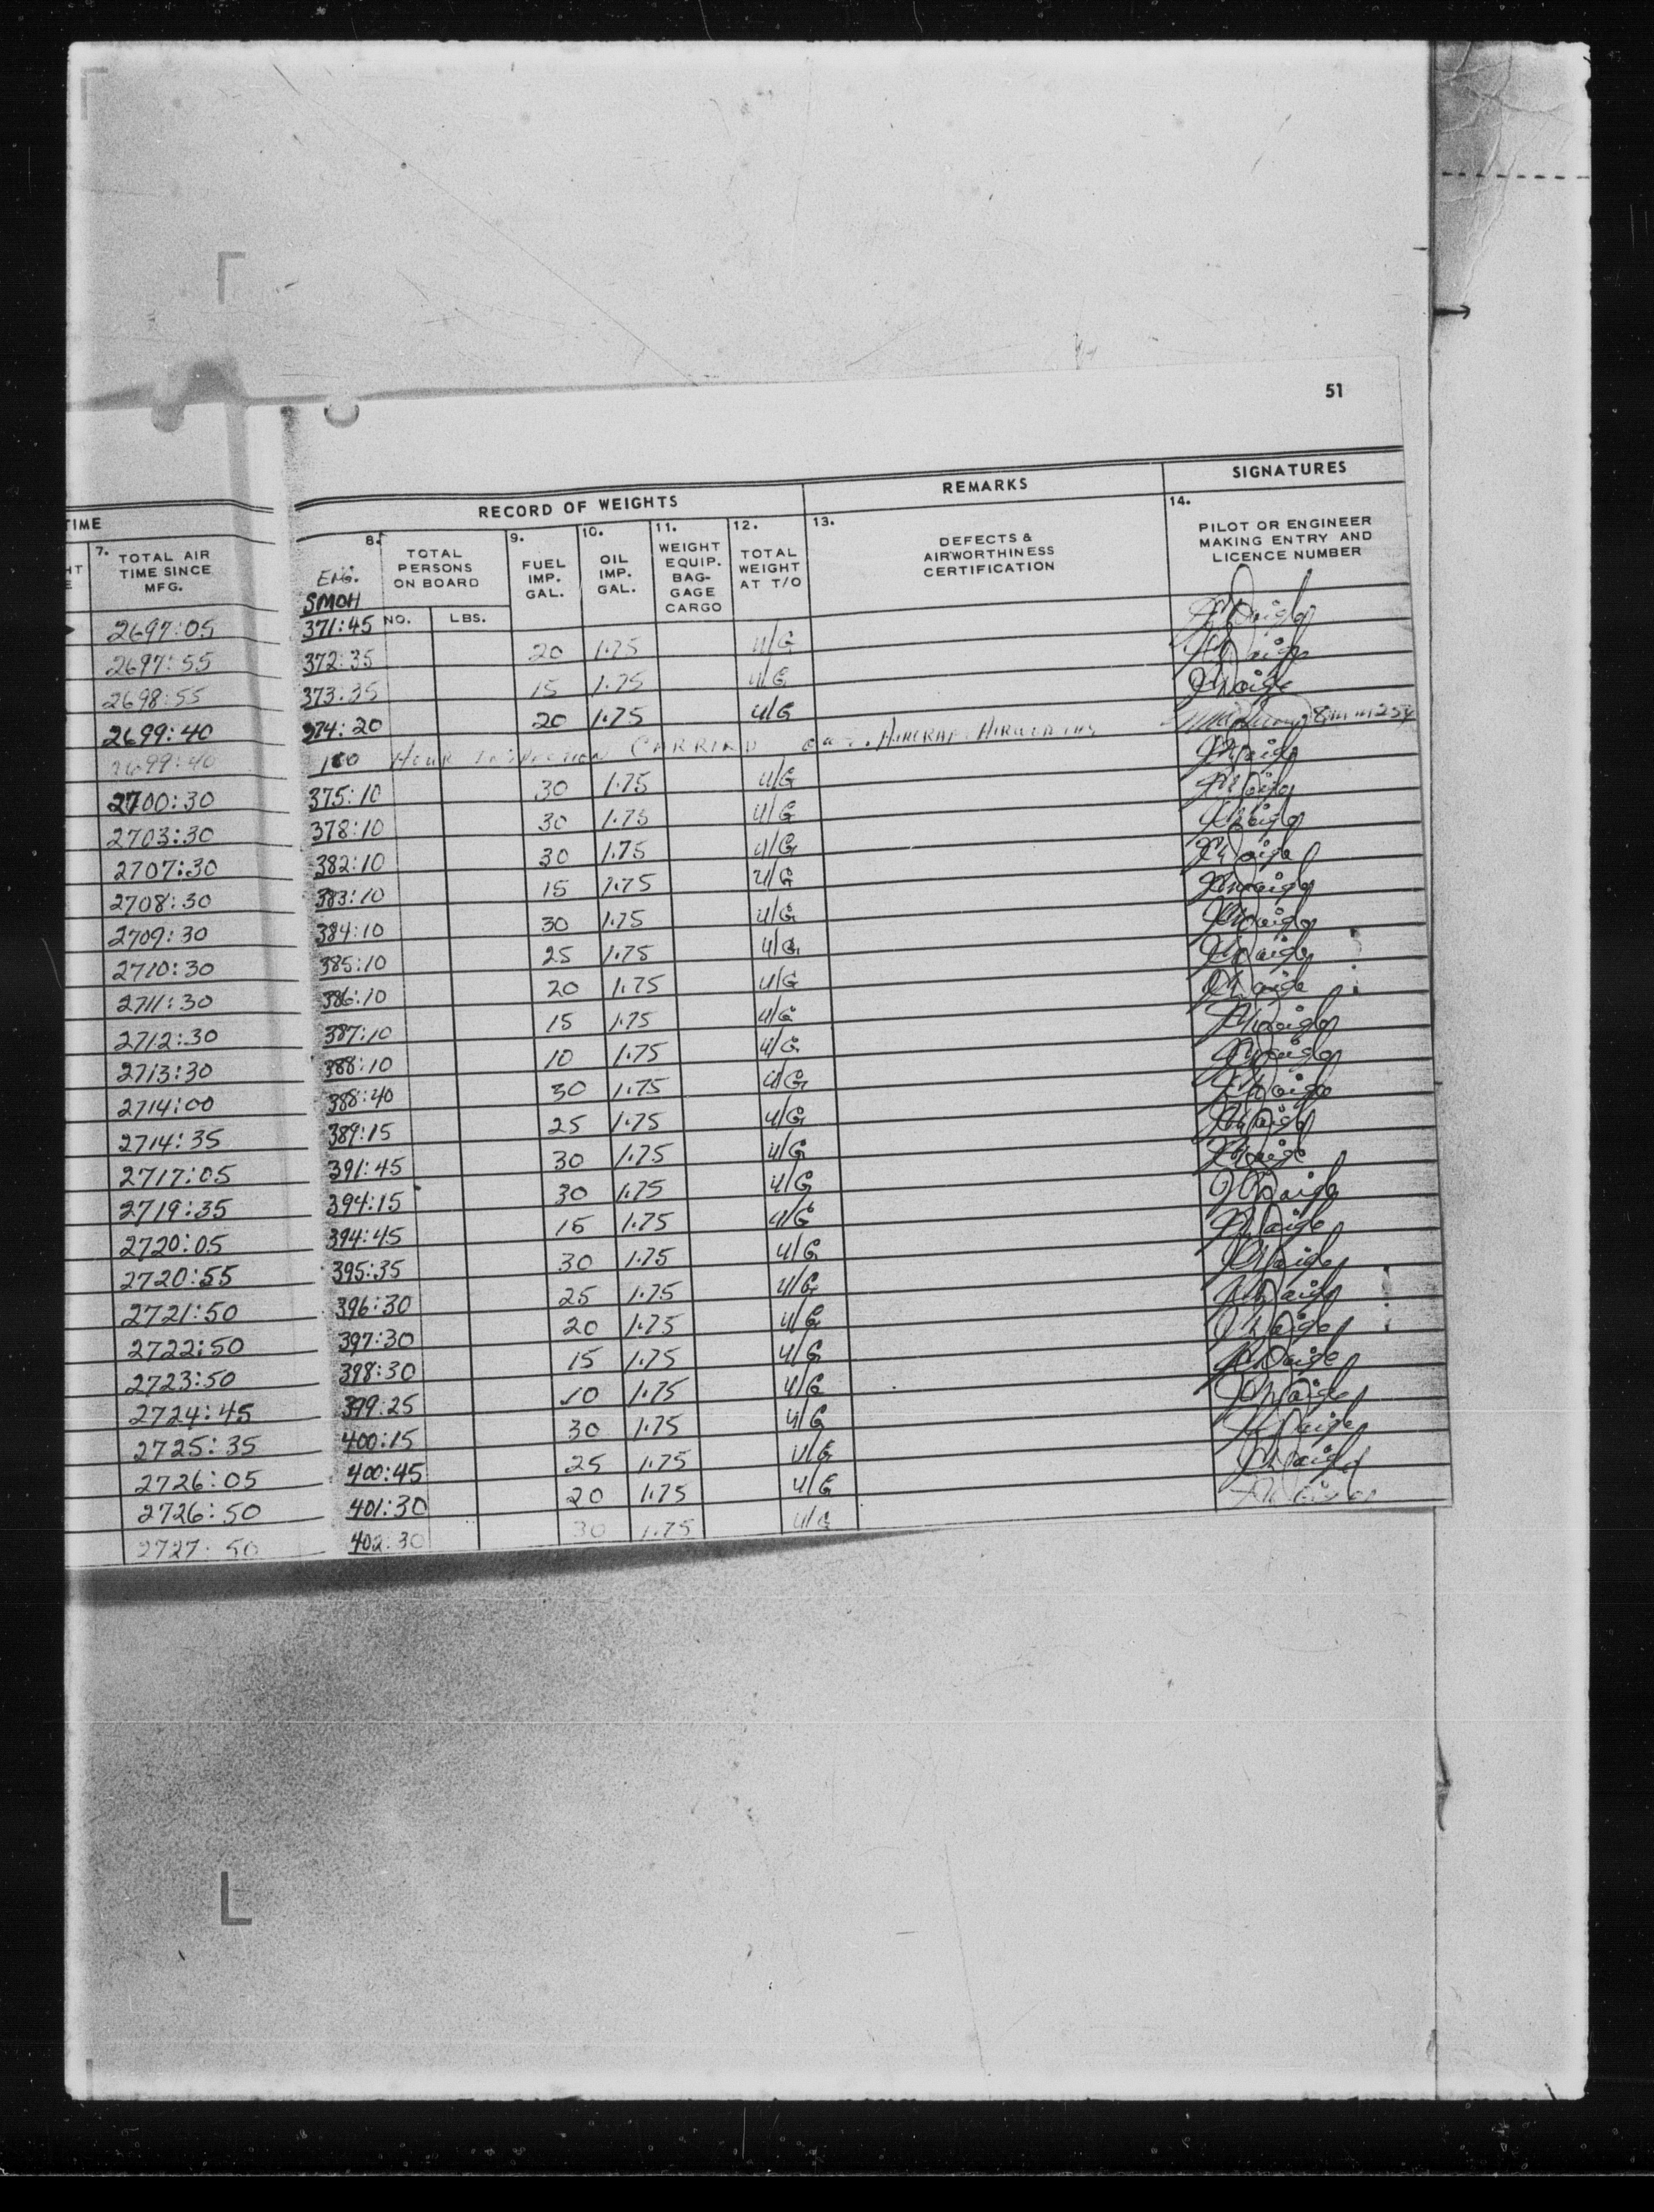 51
TIME RECORD OF WEIGHTS REMARKS SIGNATURES
7. TOTAL AIR TIME SINCE MFG. 8. ENG. SMOH TOTAL PERSONS ON BOARD NO. LBS. 9. FUEL IMP. GAL. 10. OIL IMP. GAL. 11. WEIGHT EQUIP. BAGGAGE CARGO 12. TOTAL WEIGHT AT T/O 13. DEFECTS & AIRWORTHINESS CERTIFICATION 14. PILOT OR ENGINEER MAKING ENTRY AND LICENCE NUMBER
2697:05 371:45
2697:55 372:35 20 1.75 U/G
2698:55 373:35 15 1.75 U/G
2699:40 374:20 20 1.75 U/G
2699:40 100 HOUR INSPECTION CARRIED OUT. AIRCRAFT
2700:30 375:10 30 1.75 U/G
2703:30 378:10 30 1.75 U/G
2707:30 382:10 30 1.75 U/G
2708:30 383:10 15 1.75 U/G
2709:30 384:10 30 1.75 U/G
2710:30 385:10 25 1.75 U/G
2711:30 386:10 20 1.75 U/G
2712:30 387:10 15 1.75 U/G
2713:30 388:10 10 1.75 U/G
2714:00 388:40 30 1.75 U/G
2714:35 389:15 25 1.75 U/G
2717:05 391:45 30 1.75 U/G
2719:35 394:15 30 1.75 U/G
2720:05 394:45 15 1.75 U/G
2720:55 395:35 30 1.75 U/G
2721:50 396:30 25 1.75 U/G
2722:50 397:30 20 1.75 U/G
2723:50 398:30 15 1.75 U/G
2724:45 399:25 10 1.75 U/G
2725:35 400:15 30 1.75 U/G
2726:05 400:45 25 1.75 U/G
2726:50 401:30 20 1.75 U/G
2727:50 402:30 30 1.75 U/G